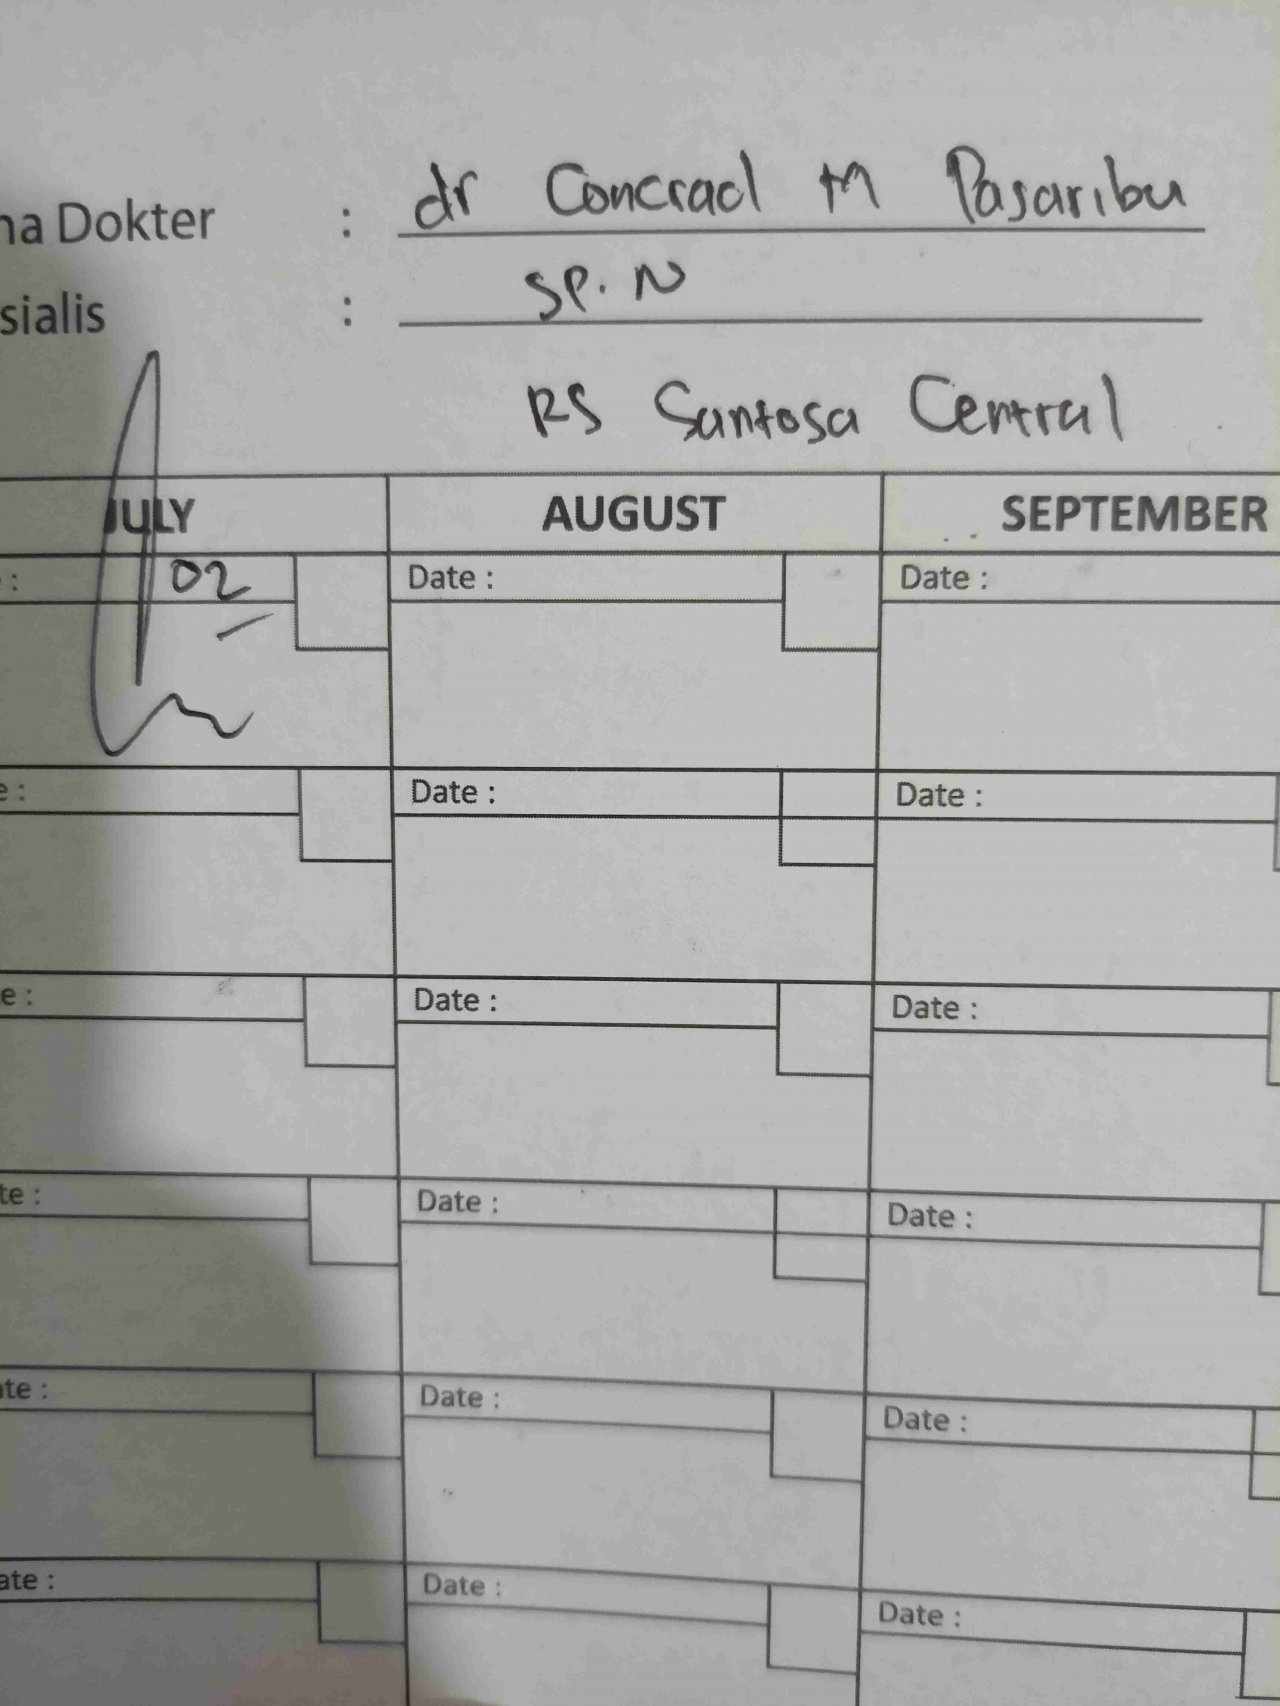 na Dokter : dr Concrad M Pasaribu
sialis : SP. N
RS Santosa Central
JULY AUGUST SEPTEMBER
e : 02 Date : Date :
e : Date : Date :
e : Date : Date :
te : Date : Date :
ate : Date : Date :
ate : Date : Date :